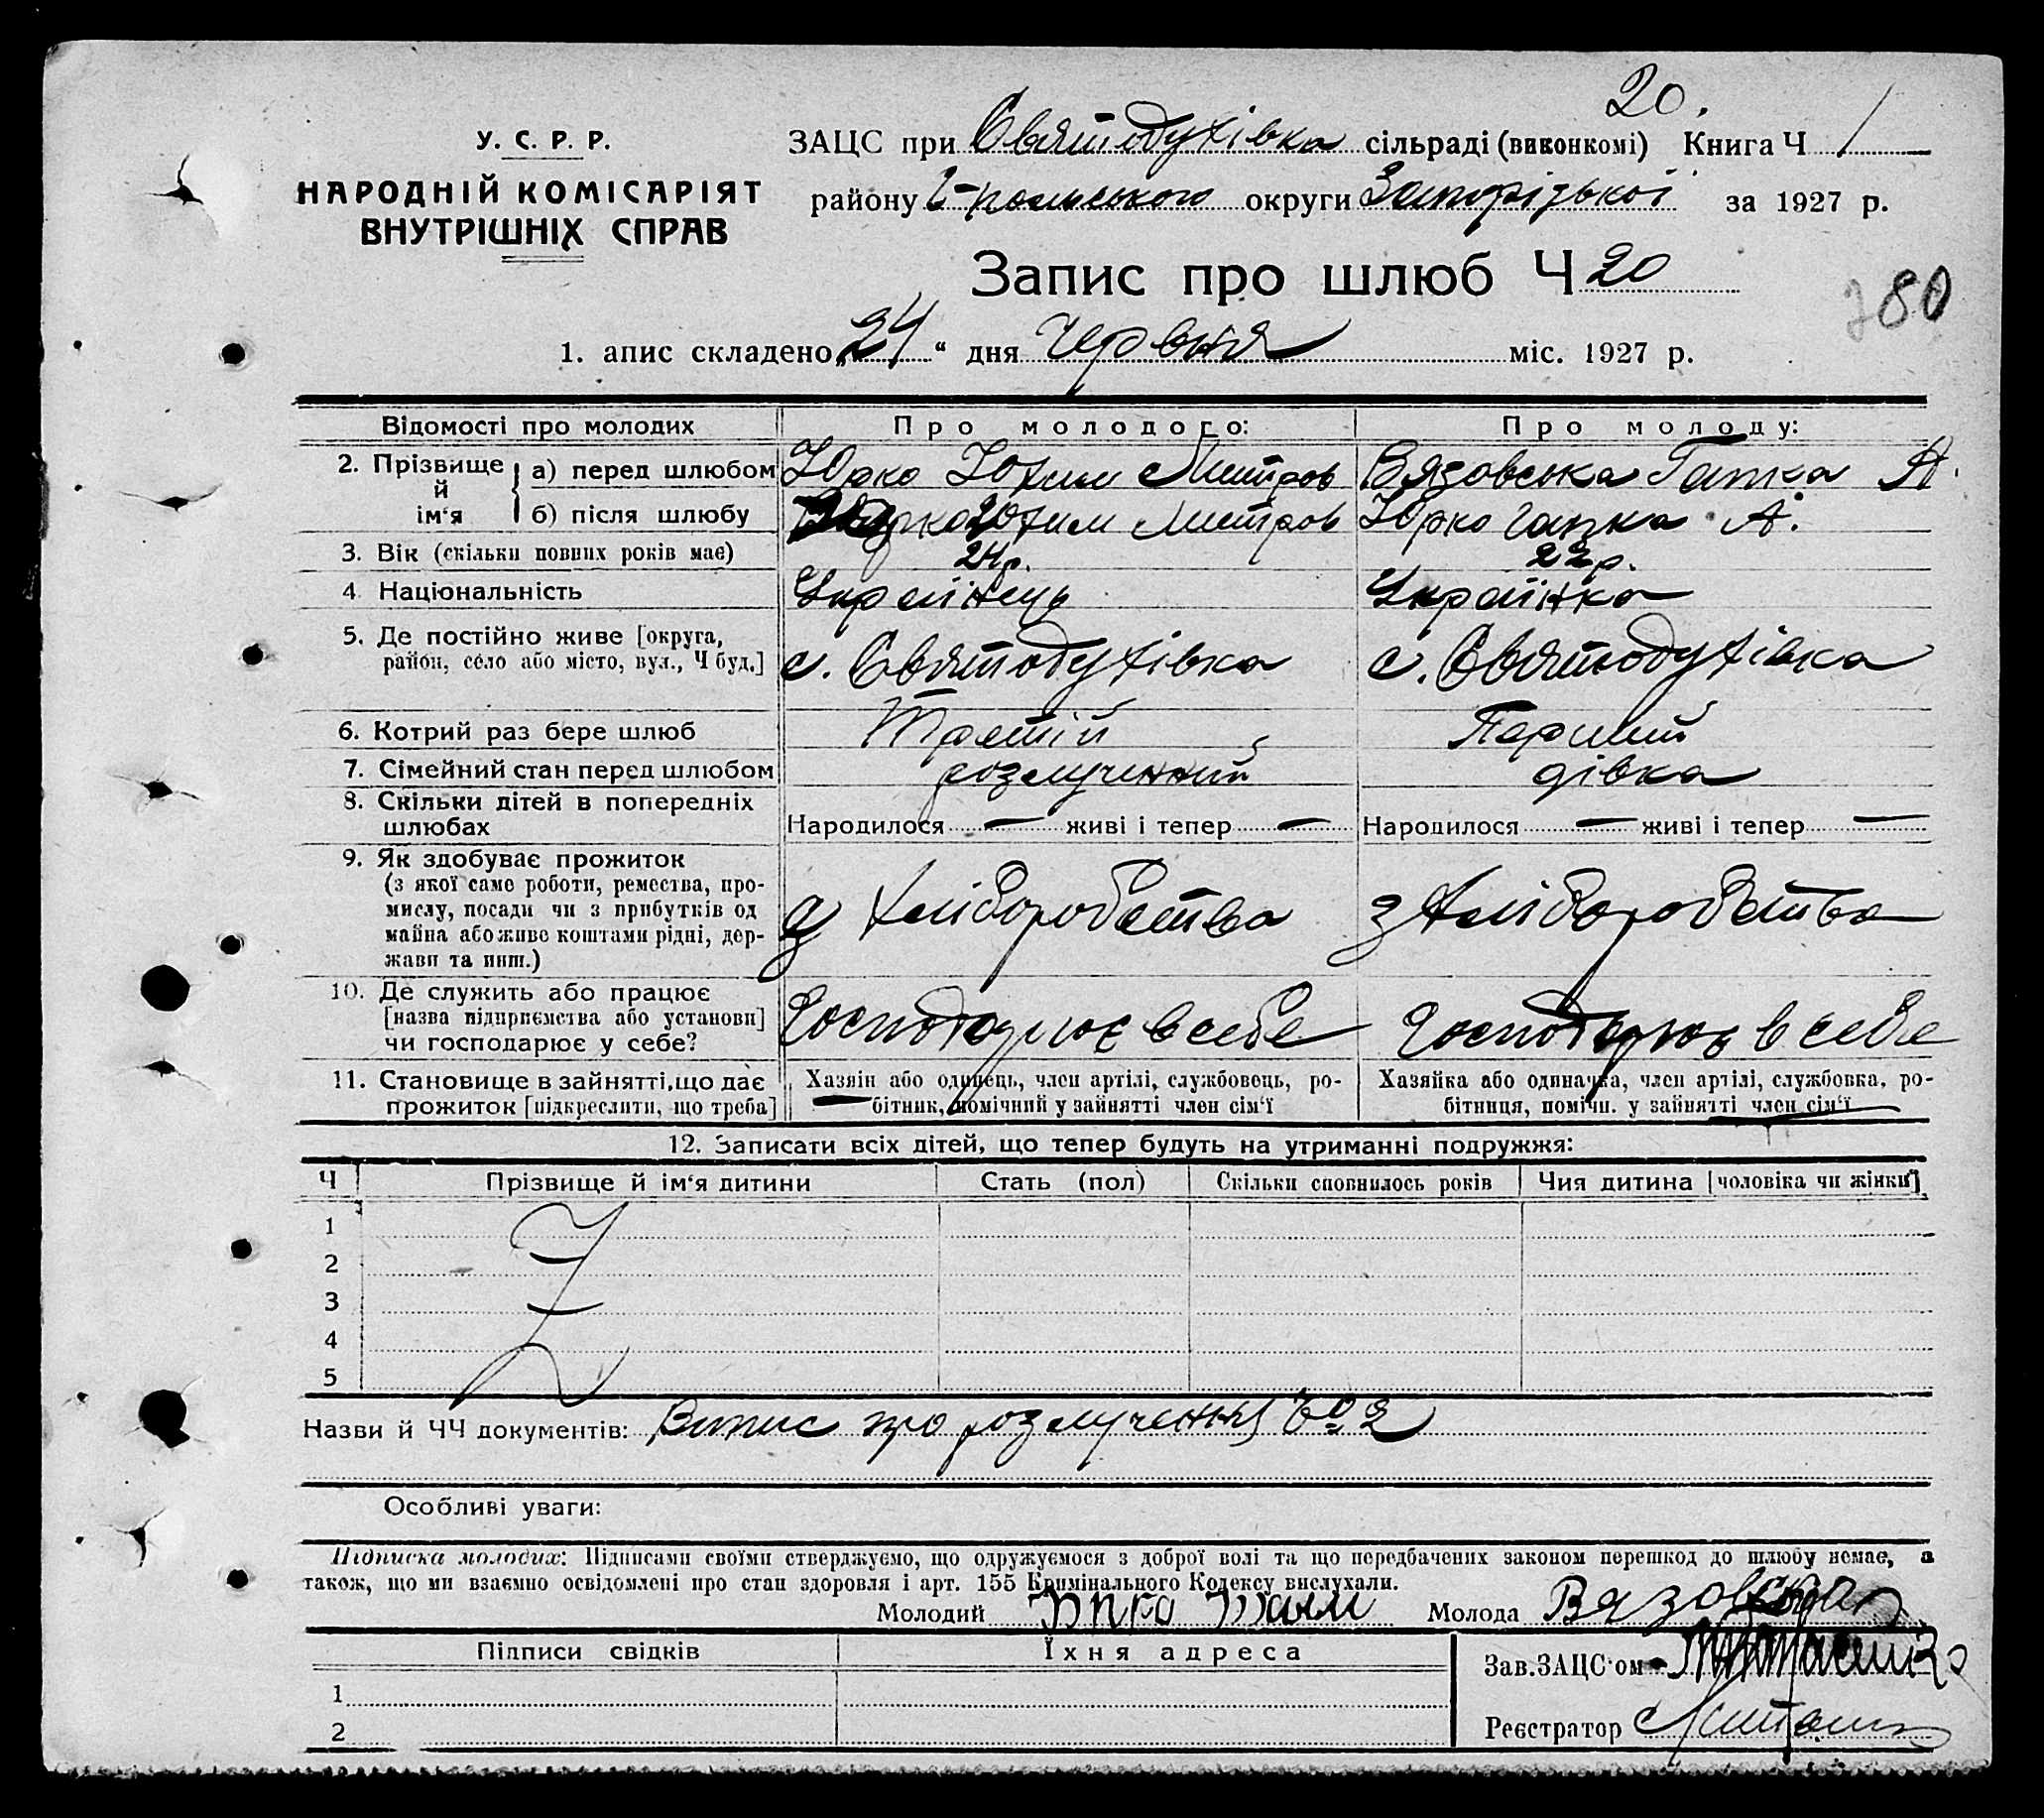 20.
У. С. Р. Р.
НАРОДНІЙ КОМІСАРІЯТ
ВНУТРІШНІХ СПРАВ
ЗАЦС при Святодухівка сільраді (виконкомі) Книга Ч 1
району Г-польського округи Запорізької за 1927 р.
Запис про шлюб Ч 20
780
1. апис складено „24“ дня Червня міс. 1927 р.
Відомості про молодих Про молодого: Про молоду:
2. Прізвище й ім‘я а) перед шлюбом Юрко Юхим Митров Вязовська Гапка А.
б) після шлюбу Юрко Юхим Митров Юрко Гапка А.
3. Вік (скільки повних років має) 24р. 22р.
4 Національність Українець Українка
5. Де постійно живе [округа, район, село або місто, вул., Ч буд.] с. Святодухівка с. Святодухівка
6. Котрий раз бере шлюб Третій Перший
7. Сімейний стан перед шлюбом розлученний дівка
8. Скільки дітей в попередніх шлюбах Народилося — живі і тепер — Народилося — живі і тепер —
9. Як здобуває прожиток
(з якої саме роботи, ремества, про-
мислу, посади чи з прибутків од
майна або живе коштами рідні, дер-
жави та инш.)
з хліборобства з хліборобства
10. Де служить або працює
[назва підприємства або установи]
чи господарює у себе?
Господарює в себе Господарює в себе
11. Становище в зайнятті, що дає
прожиток [підкреслити, що треба]
Хазяїн або одинець, член артілі, службовець, ро-
бітник, помічний у зайнятті член сім‘ї
Хазяйка або одиначка, член артілі, службовка, ро-
бітниця, помічн. у зайнятті член сім‘ї
12. Записати всіх дітей, що тепер будуть на утриманні подружжя:
Ч Прізвище й ім‘я дитини Стать (пол) Скільки сповнилось років Чия дитина [чоловіка чи жінки]
1
2
3
4
5
Назви й ЧЧ документів: Випис про розлучення
Особливі уваги:
Підписка молодих: Підписами своїми стверджуємо, що одружуємося з доброї волі та що передбачених законом перешкод до шлюбу немає, а
також, що ми взаємно освідомлені про стан здоров‘я і арт. 155 Кримінального Кодексу вислухали.
Молодий Юрко Молода Вязовска
Підписи свідків Їхня адреса
Зав. ЗАЦС‘ом
1
2
Реєстратор